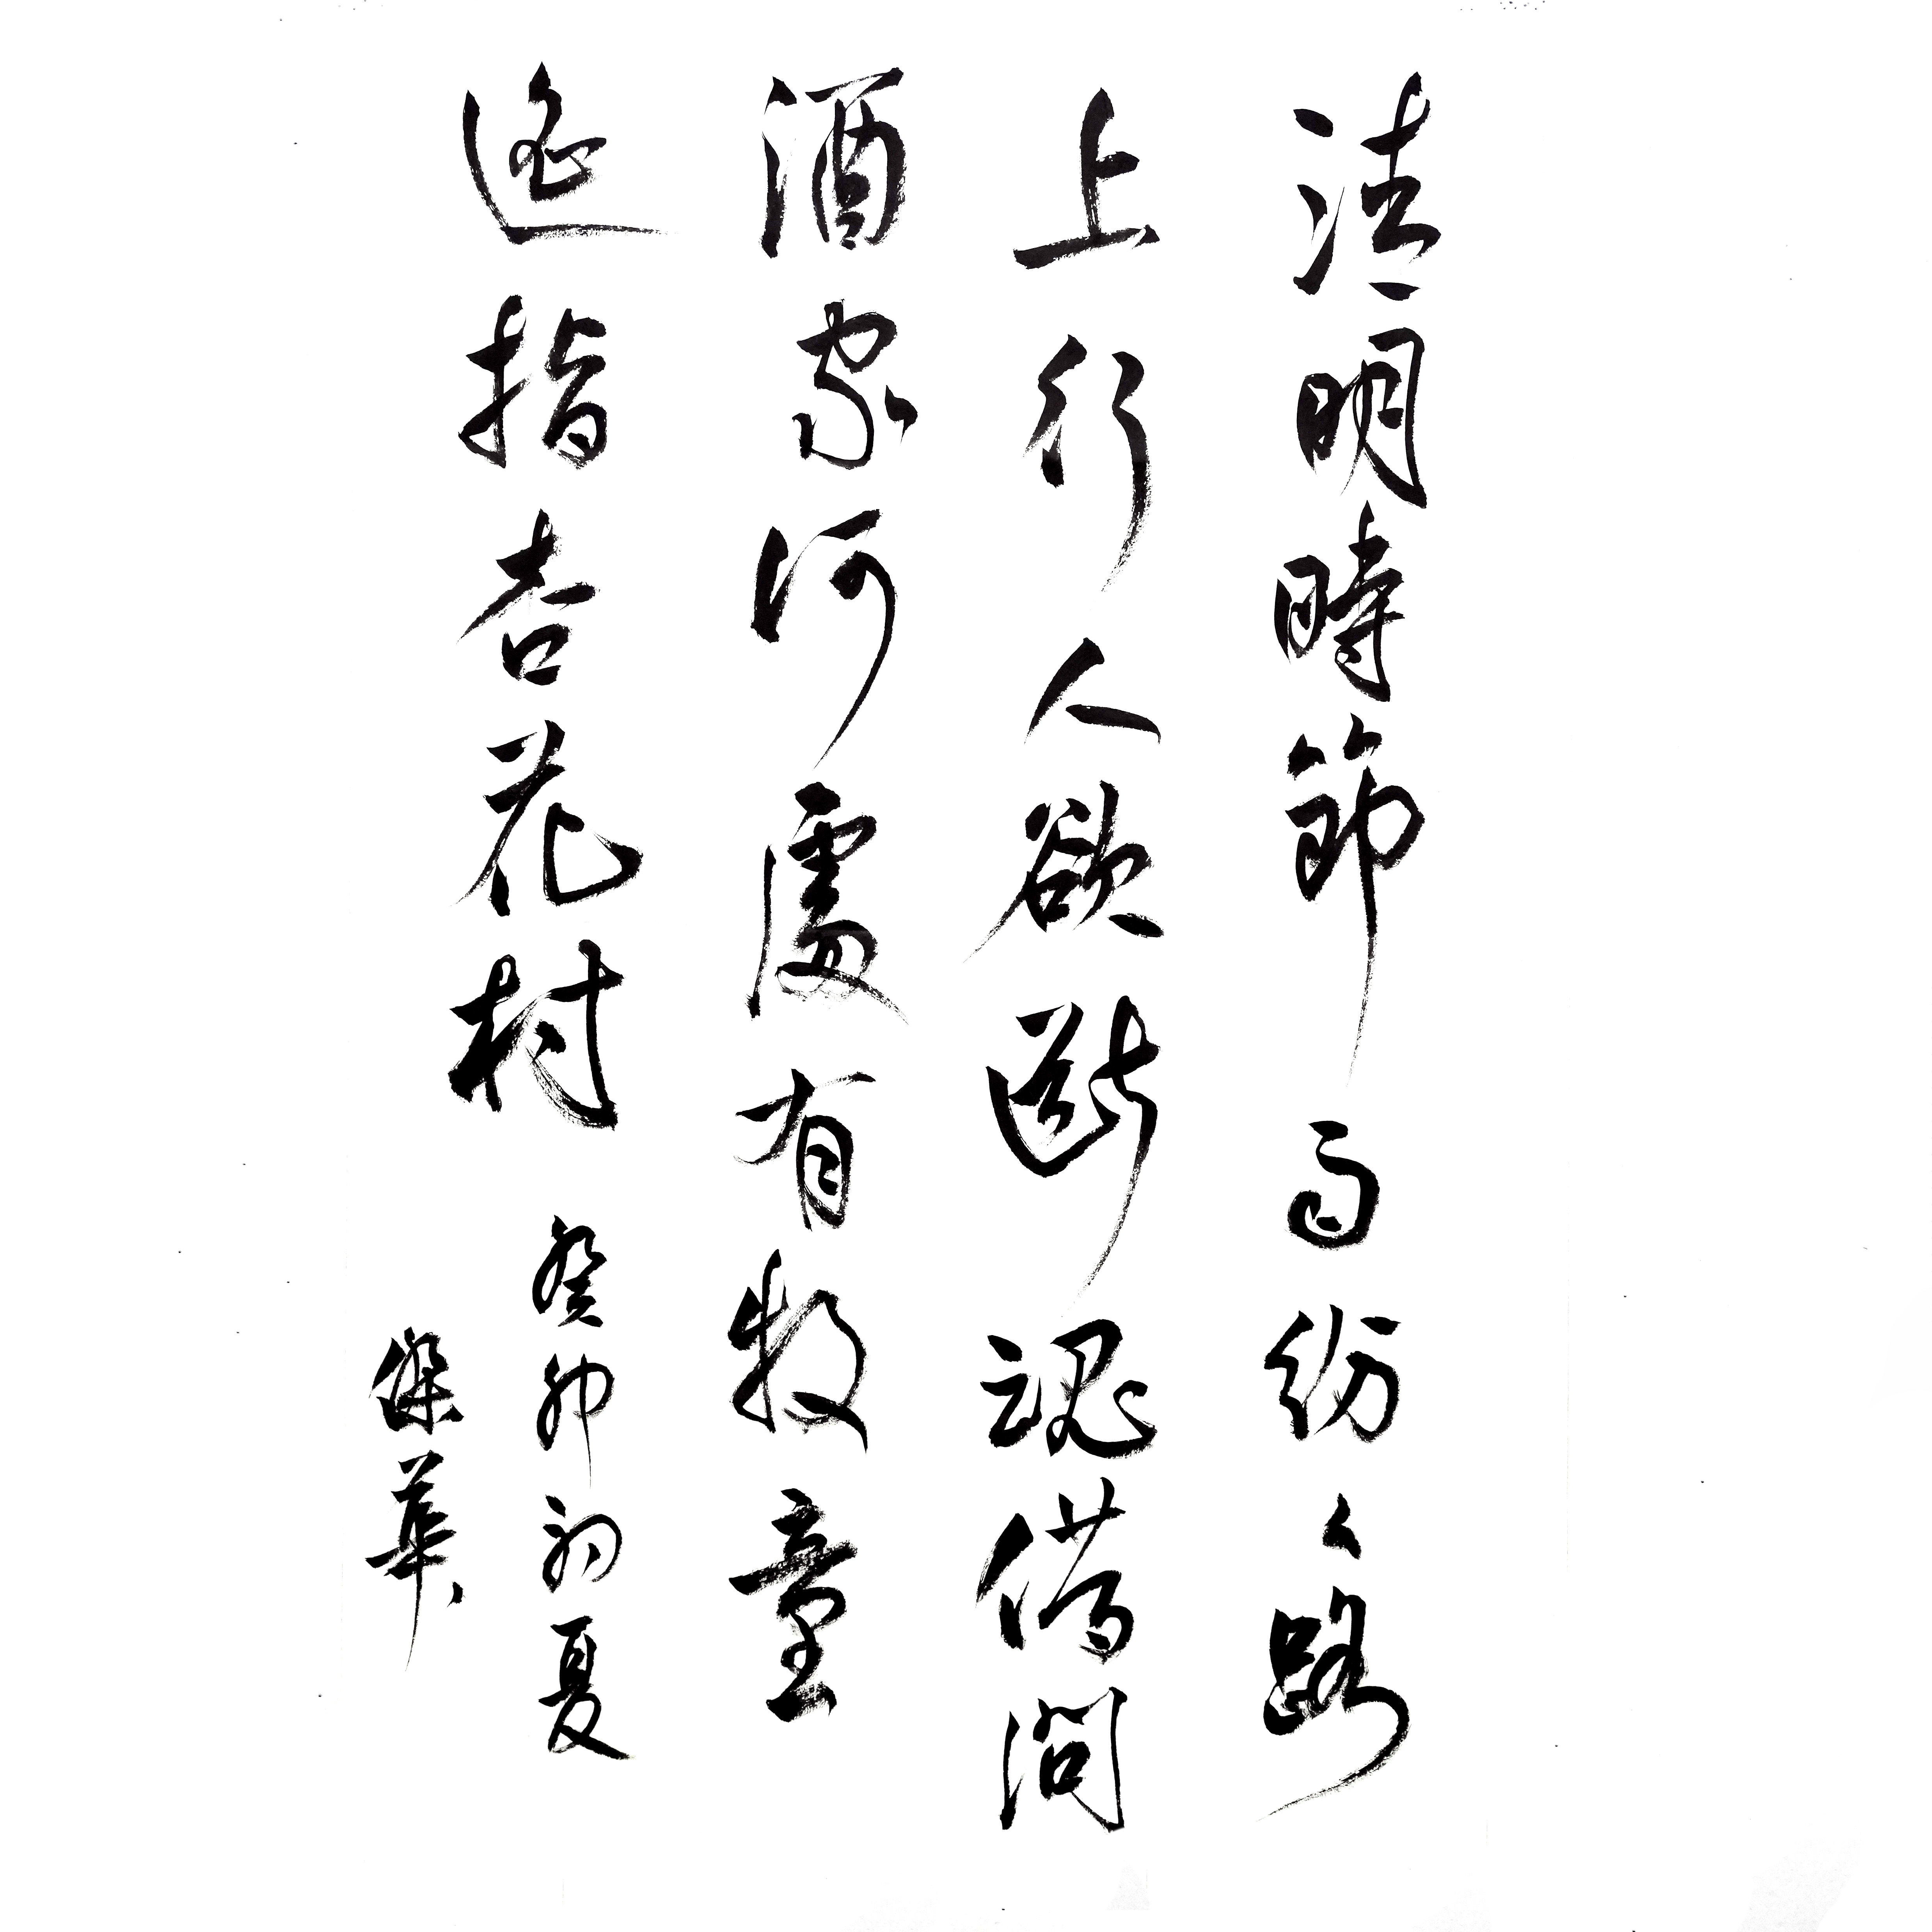 清明時節雨紛々路
上行人欲斷魂借問
酒家何處有牧童
遙指杏花村
癸卯初夏
傑華